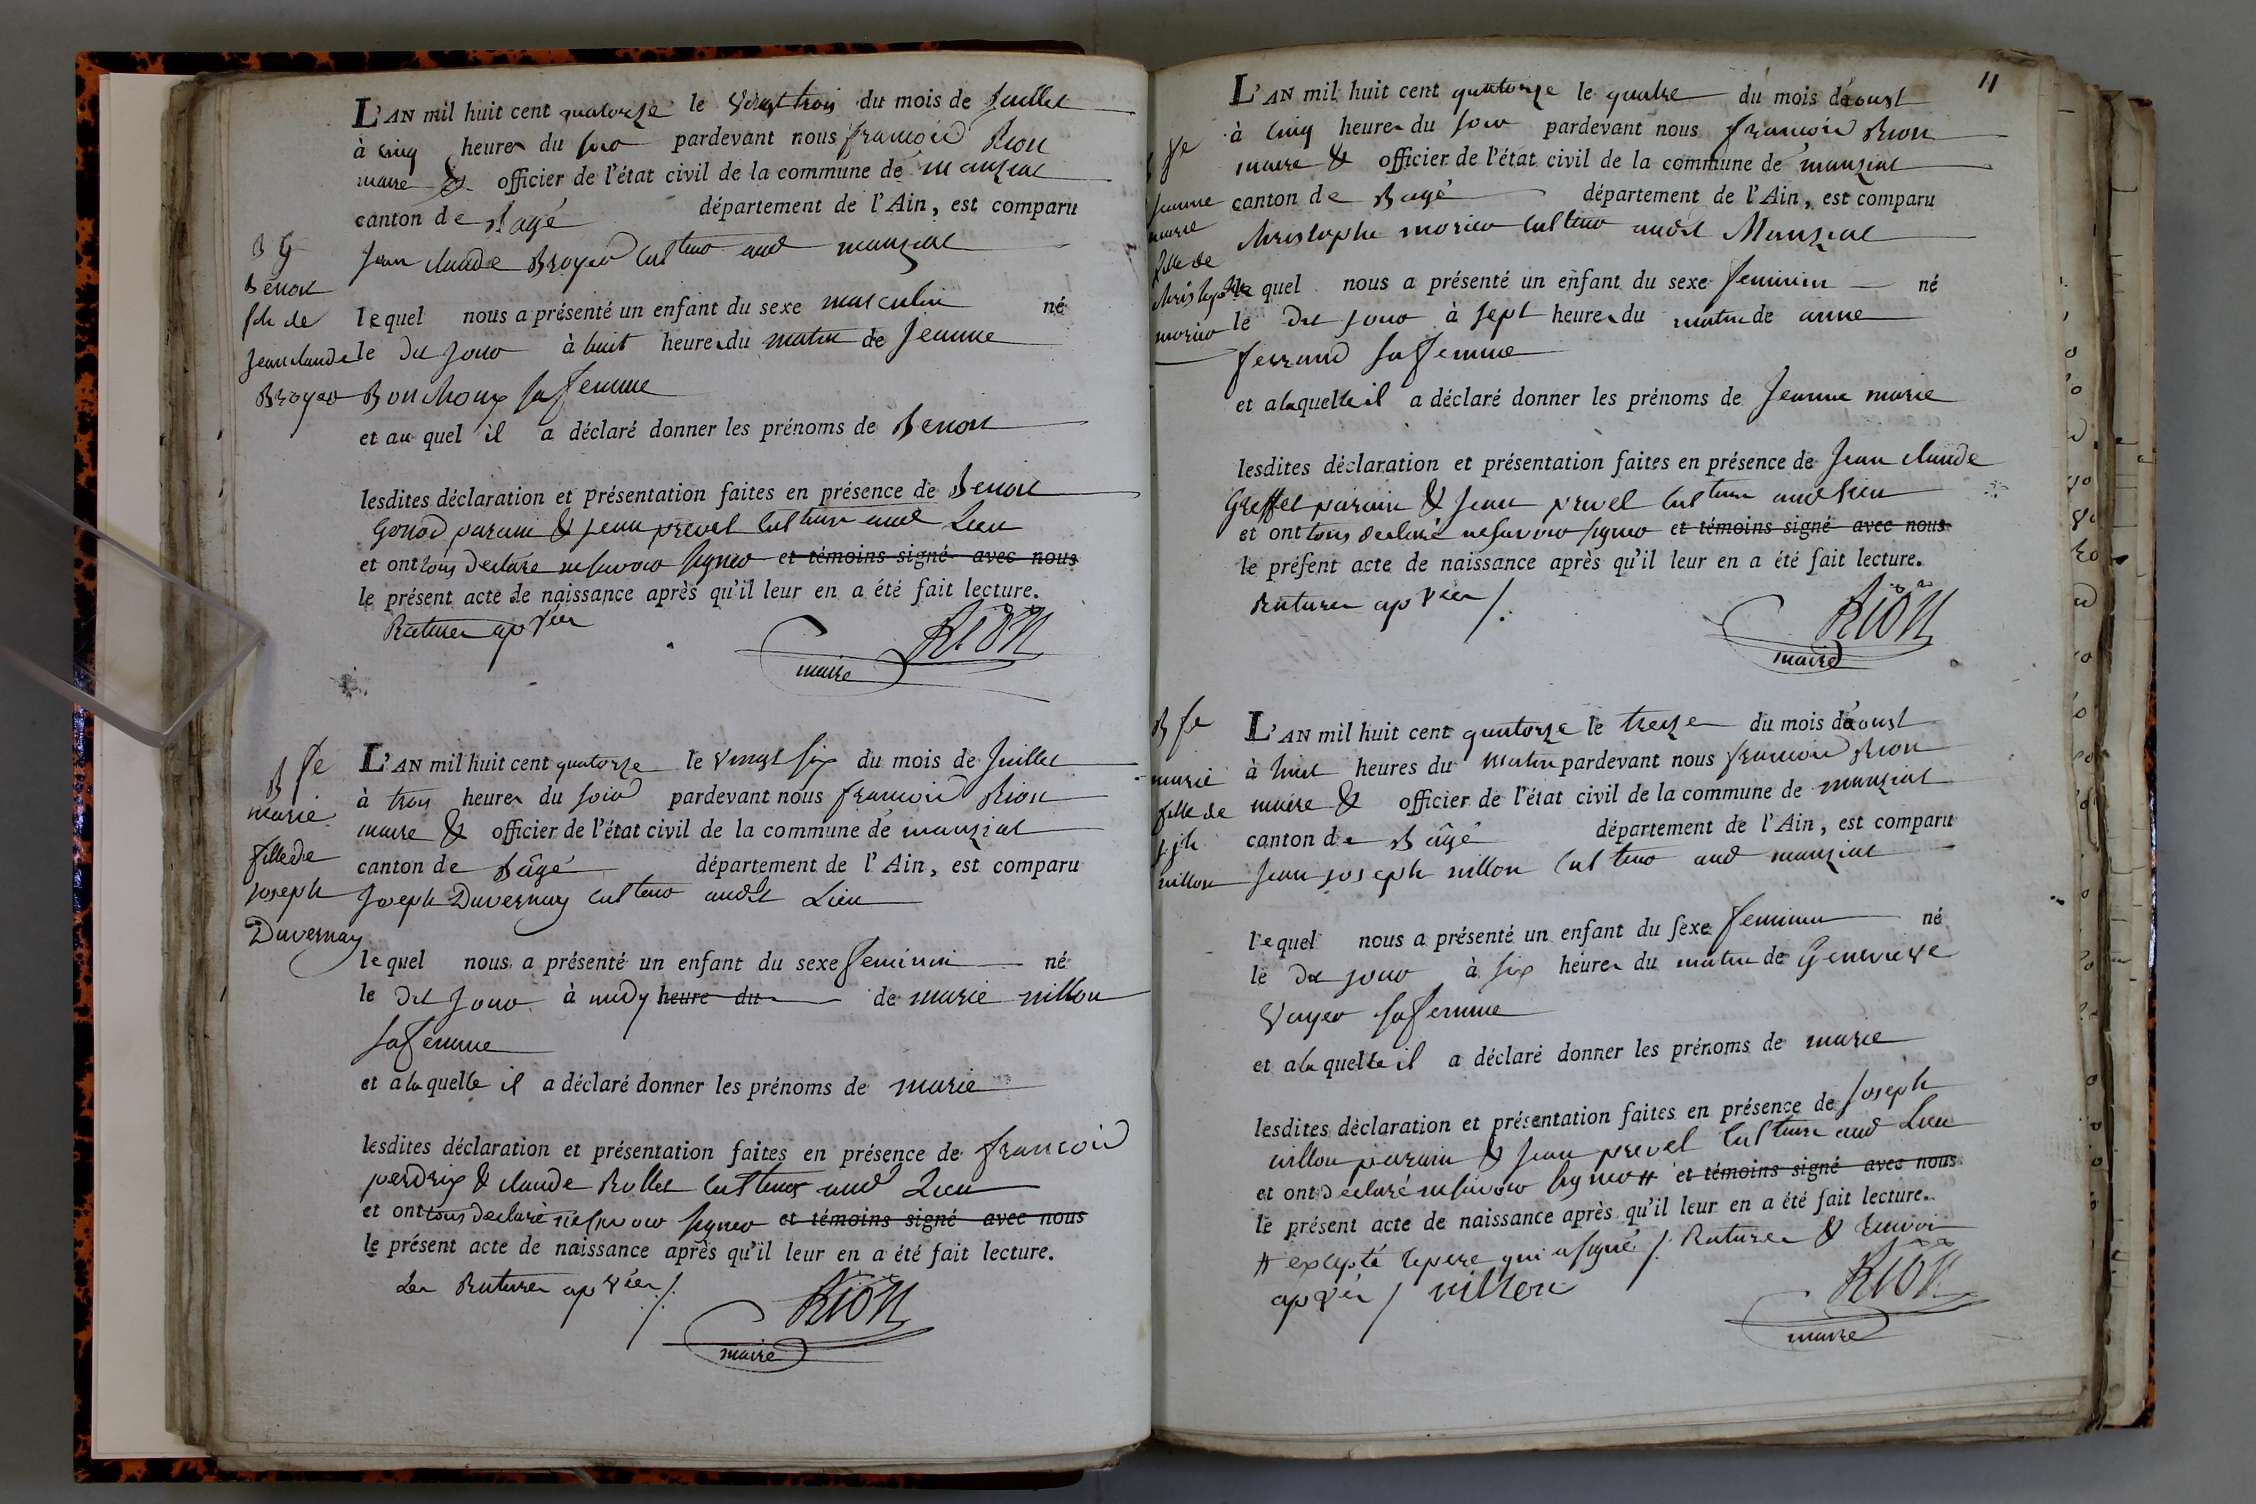 L'AN mil huit cent quatorze le vingt trois du mois de Juillet
à cinq heures du soir pardevant nous françois Rion
maire & officier de l'état civil de la commune de manziat
canton de Bagé département de l'Ain, est comparu
Jean claude Broyer cultiv aud manziat
lequel nous a présenté un enfant du sexe masculin né
le dit jour à huit heures du matin de Jeanne
Bonchoux sa femme
et au quel il a déclaré donner les prénoms de Benoit
lesdites déclaration et présentation faites en présence de Benoit
Gonod parain & jean prevel cultivr aud Lieu
et ont tous declaré ne savoir signer et témoins signé avec nous
le présent acte de naissance après qu'il leur en a été fait lecture.
Ratures ap vées
Rion
maire
B G
Benoit
fils de
Jean claude
Broyer
L'AN mil huit cent quatorze le vingt six du mois de Juillet
à trois heures du soir pardevant nous françois Rion
maire & officier de l'état civil de la commune de manziat
canton de Bâgé département de l'Ain, est comparu
Joseph Duvernay cultivr audit Lieu
lequel nous a présenté un enfant du sexe feminin né
le dit jour à midy heure du de marie nillon
sa femme
et a la quelle il a déclaré donner les prénoms de marie
lesdites déclaration et présentation faites en présence de françois
perdrix & claude Rollet cultivrs aud Lieu
et ont tous declaré ne savoir signer et témoins signé avec nous
le présent acte de naissance après qu'il leur en a été fait lecture.
Les Ratures ap vées /.
Rion
maire
B fe
marie
fille de
joseph
Duvernay
11
L'AN mil huit cent quatorze le quatre du mois d'aoust
à cinq heures du soir pardevant nous françois Rion
maire & officier de l'état civil de la commune de manziat
canton de Bagé département de l'Ain, est comparu
christophe morier cultivr audit Manziat
le quel nous a présenté un enfant du sexe feminin né
le dit jour à sept heures du matin de anne
ferrand sa femme
et a la quelle il a déclaré donner les prénoms de Jeanne marie
lesdites déclaration et présentation faites en présence de Jean claude
Greffet parain & Jean prevel cultivr aud lieu
et ont tous declaré ne savoir signer et témoins signé avec nous
le présent acte de naissance après qu'il leur en a été fait lecture.
Ratures ap vées /.
Rion
maire
B fe
jeanne
marie
fille de
christophe
morier
L'AN mil huit cent quatorze le treize du mois d'aoust
à huit heures du matin pardevant nous françois Rion
maire & officier de l'état civil de la commune de manziat
canton de Bâgé département de l'Ain, est comparu
Jean joseph nillon cultivr aud manziat
lequel nous a présenté un enfant du sexe feminin né
le dit jour à six heures du matin de Genevieve
Voyer sa femme
et a la quelle il a déclaré donner les prénoms de marie
lesdites déclaration et présentation faites en présence de Joseph
nillon parain & jean prevel cultivr aud Lieu
et ont declaré ne savoir signer # et témoins signé avec nous
le présent acte de naissance après qu'il leur en a été fait lecture.
# excepté le pere qui a signé /. Ratures & renvoi
ap vés / nillon
Rion
maire
B fe
marie
fille de
j. jh
nillon